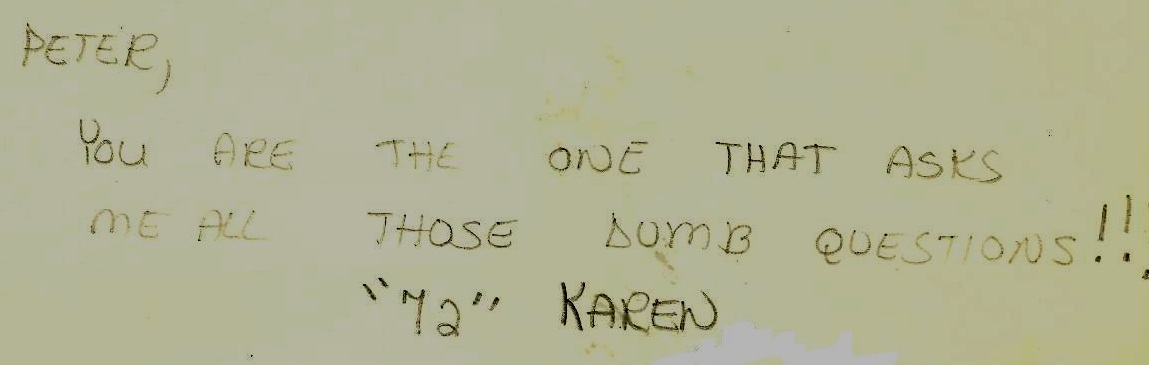 PETER,
YOU ARE THE ONE THAT ASKS
ME ALL THOSE DUMB QUESTIONS!!!
"72" KAREN